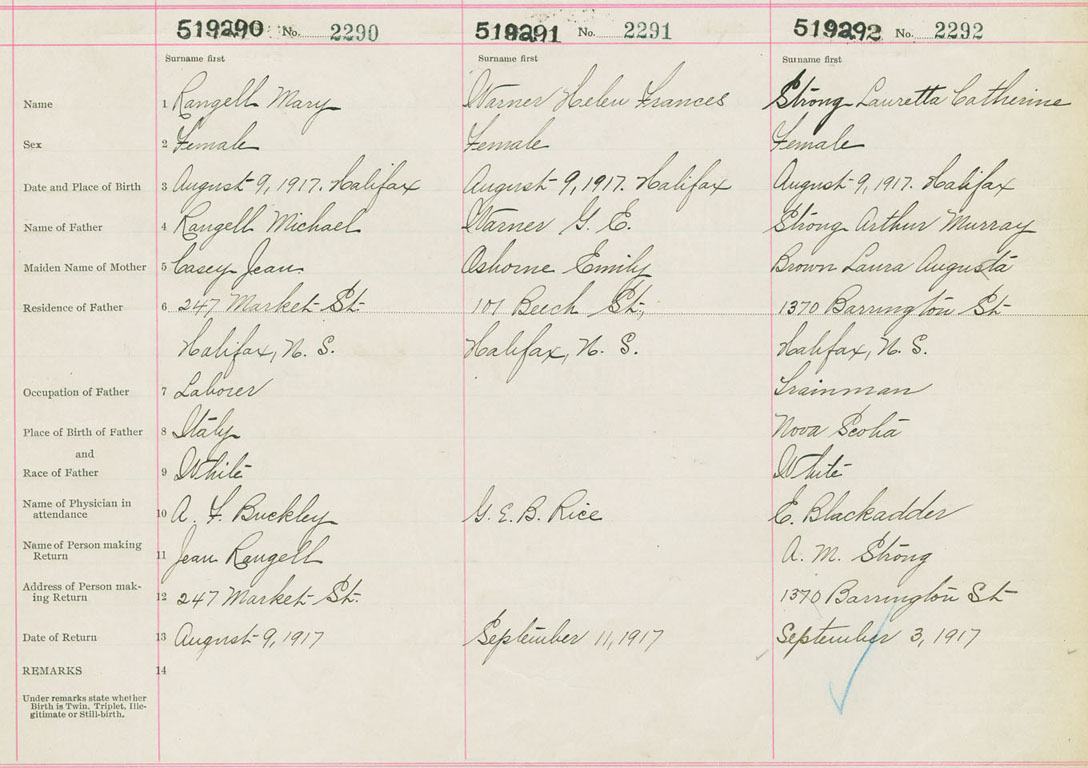 519290 No. 2290 519291 No. 2291 519292 No. 2292
Surname first Surname first Surname first
Name 1 Rangell Mary Warner Helen Frances Strong Lauretta Catherine
Sex 2 Female Female Female
Date and Place of Birth 3 August 9, 1917. Halifax August 9, 1917. Halifax August 9, 1917. Halifax
Name of Father 4 Rangell Michael Warner G. E. Strong Arthur Murray
Maiden Name of Mother 5 Casey Jean Osborne Emily Brown Laura Augusta
Residence of Father 6 247 Market St. 101 Beech St., 1370 Barrington St
Halifax, N. S. Halifax, N. S. Halifax, N. S.
Occupation of Father 7 Laborer Trainman
Place of Birth of Father 8 Italy Nova Scotia
and
Race of Father 9 White White
Name of Physician in
attendance 10 A. F. Buckley G. E. B. Rice E. Blackadder
Name of Person making
Return 11 Jean Rangell A. M. Strong
Address of Person mak-
ing Return 12 247 Market St. 1370 Barrington St
Date of Return 13 August 9, 1917 September 11, 1917 September 3, 1917
REMARKS 14
Under remarks state whether
Birth is Twin, Triplet, Ille-
gitimate or Still-birth.